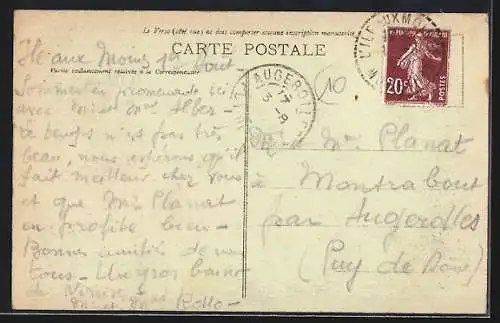 Le Verso (côté vue) ne doit comporter aucune inscription manuscrite
CARTE POSTALE
Partie exclusivement réservée à la Correspondance
Ile aux Moines 1er Aout -
Sommes en promenade ici
avec Mr et Mme Alber -
Le temps n'est pas très
beau, nous espérons qu'il
fait meilleur chez vous
et que Mr Planat
en profite bien -
Bonnes amitiés de nous
tous - Un gros baiser
de
Mr et Mme Rollo -
L'ILE AUX MOI
20c
POSTES
AUGEROLLES
(10
Mr et Mme Planat
à Montrabout
par Augerolles
(Puy de Dôme)